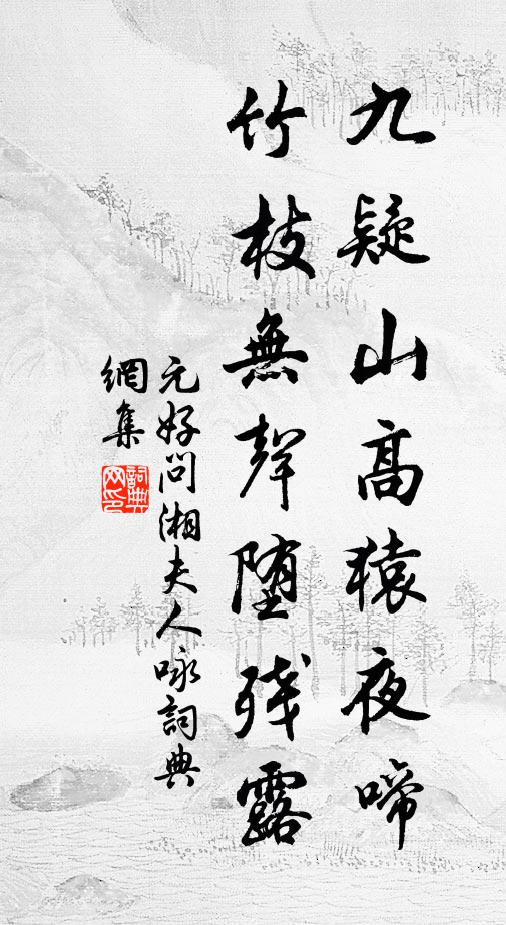 九疑山高猿夜啼
竹枝無聲堕殘露
元好问湘夫人咏詞典
網集
詞典
网印